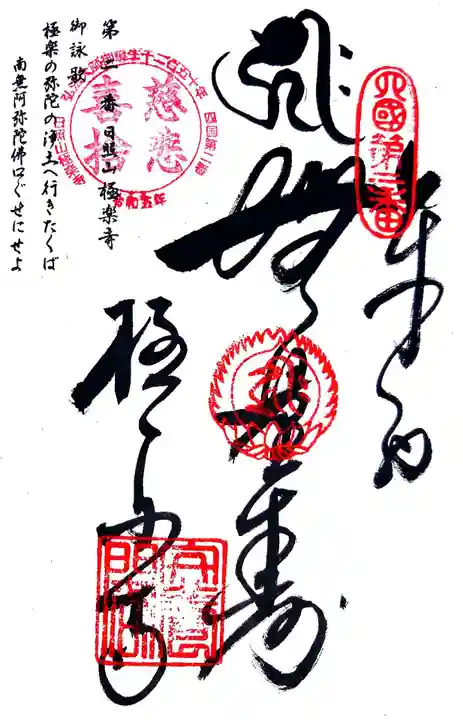 四國第二番
奉納
無量壽
極楽寺
慈悲
喜捨
四国第二番
日照山極楽寺
令和五年
第二番日照山極楽寺
御詠歌
極楽の弥陀の浄土へ行きたくば
南無阿弥陀佛口ぐせにせよ